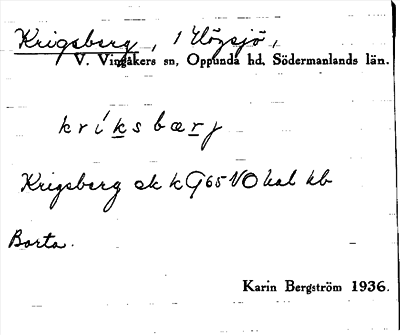 Krigsberg, i Högsjö,
V. Vingåkers sn, Oppunda hd, Södermanlands län.
kríksbærj
Krigsberg ek k G65 VO hal kb
Borta.
Karin Bergström 1936.